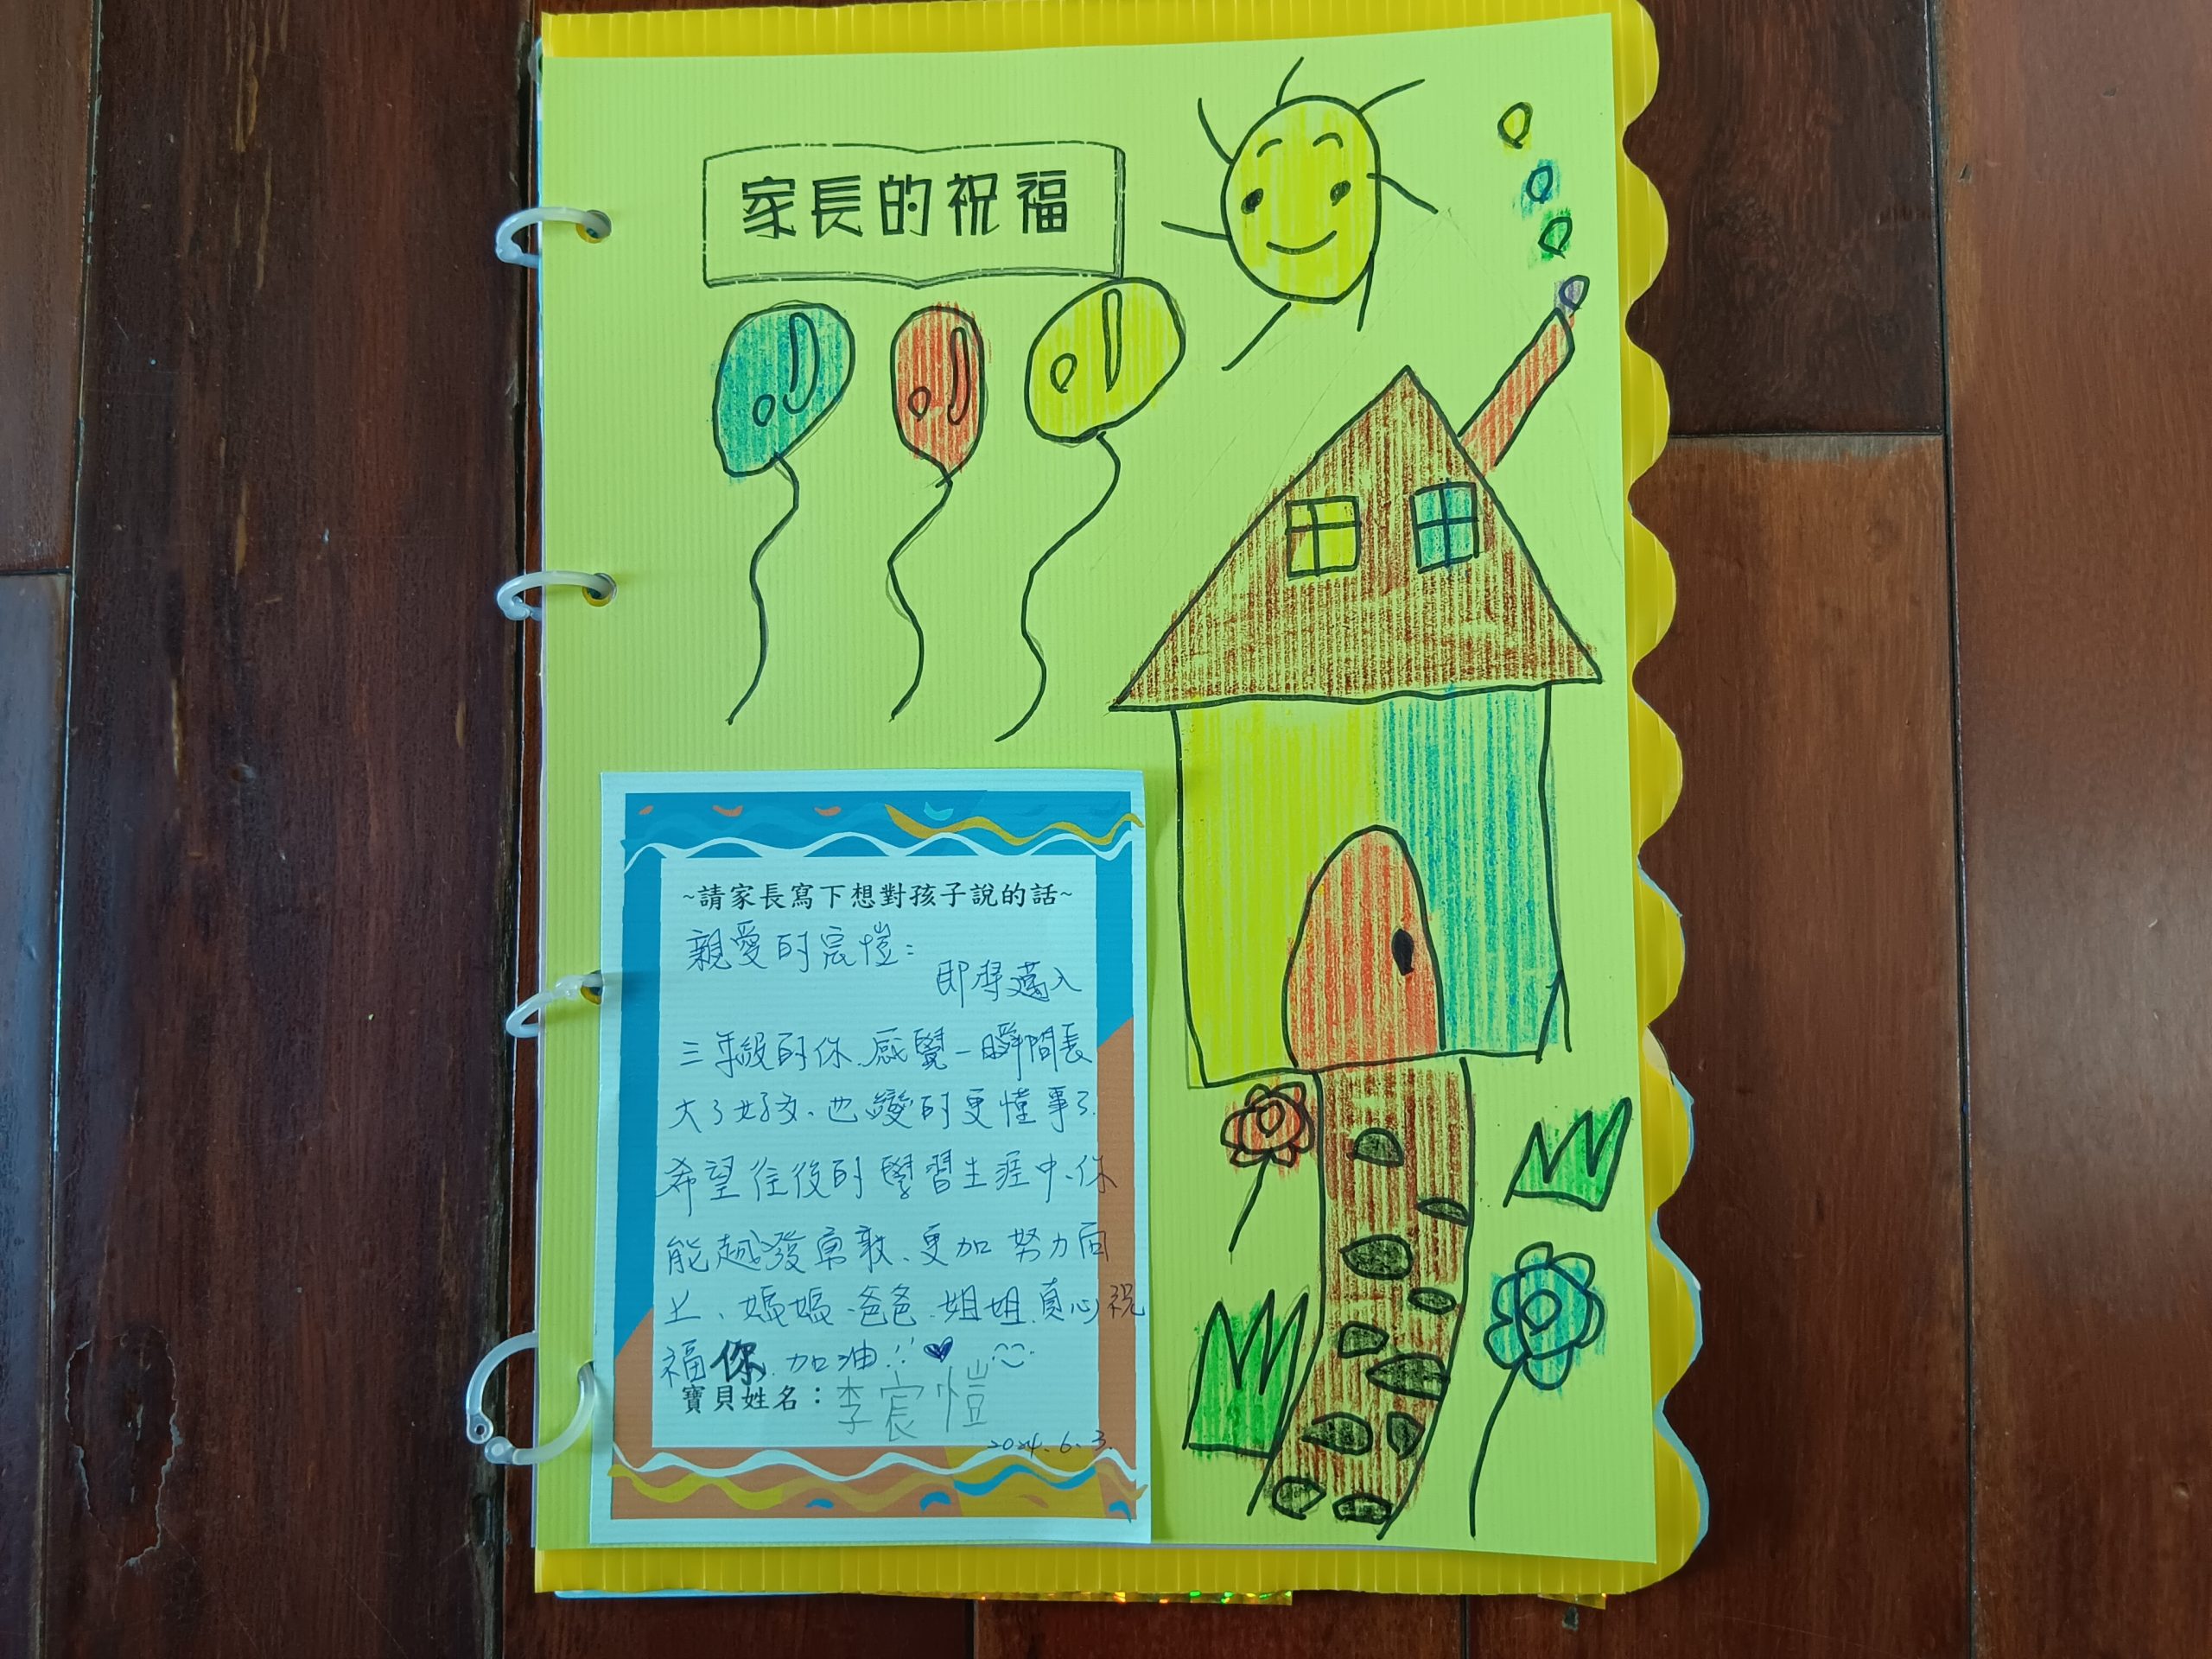 家長的祝福
~請家長寫下想對孩子說的話~
親愛的宸愷:
即將邁入
三年級的你、感覺一瞬間長
大了好多、也變的更懂事了.
希望往後的學習生涯中、你
能越發勇敢、更加努力向
上、媽媽、爸爸、姐姐、真心祝
福你、加油!!♥
寶貝姓名:李宸愷
2024.6.3.